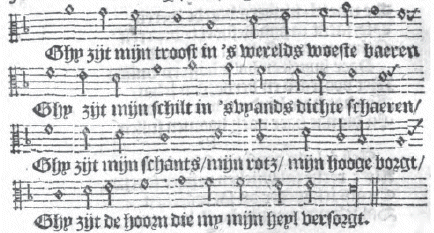 Ghy zijt mijn troost in 's werelds woeste baeren
Ghy zijt mijn schilt in 'svyands dichte schaeren/
Ghy zijt mijn schants/mijn rotz/ mijn hooge borgt/
Ghy zijt de hoorn die my mijn heyl versorgt.